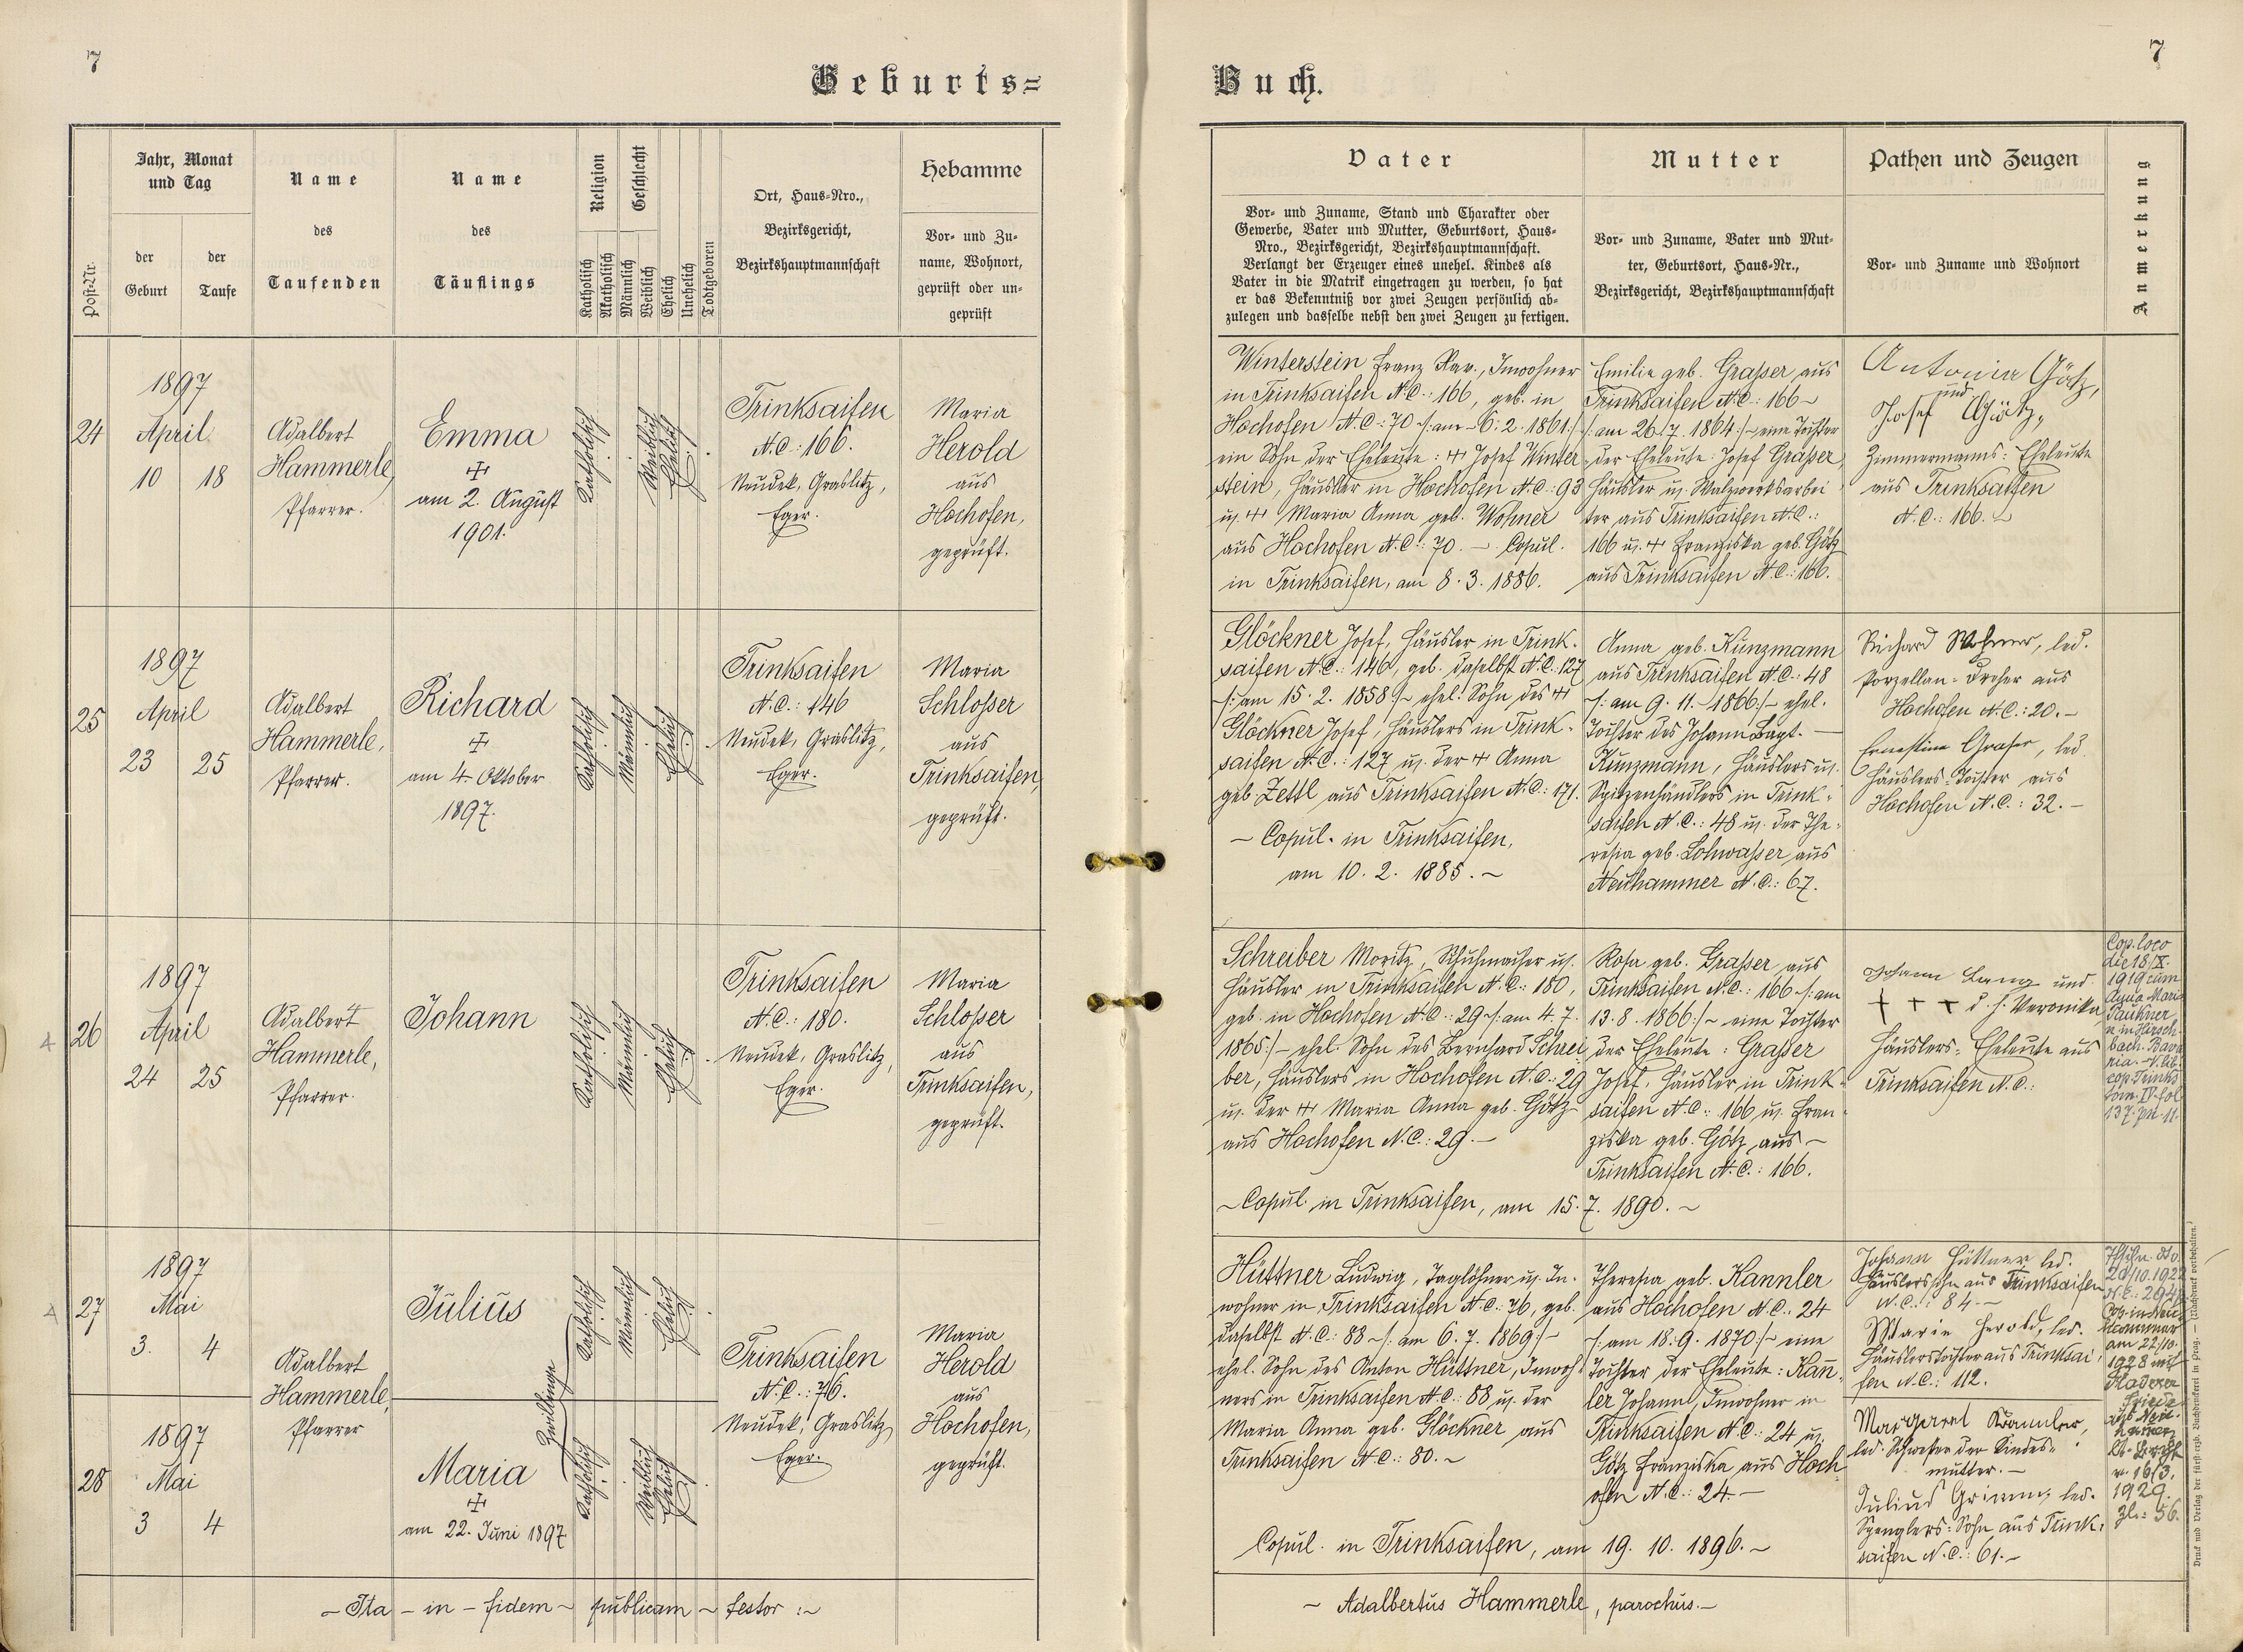 7
Geburts=
Buch.
7
Post-Nr.
Jahr, Monat
und Tag
der
Geburt
der
Taufe
Name
des
Taufenden
Name
des
Täuflings
Religion
Katholisch
Akatholisch
Geschlecht
Männlich
Weiblich
Ehelich
Unehelich
Todtgeboren
Ort, Haus=Nro.,
Bezirksgericht,
Bezirkshauptmannschaft
Hebamme
Vor= und Zu=
name, Wohnort,
geprüft oder un=
geprüft
Vater
Vor= und Zuname, Stand und Charakter oder
Gewerbe, Vater und Mutter, Geburtsort, Haus=
Nro., Bezirksgericht, Bezirkshauptmannschaft.
Verlangt der Erzeuger eines unehel. Kindes als
Vater in die Matrik eingetragen zu werden, so hat
er das Bekenntniß vor zwei Zeugen persönlich ab=
zulegen und dasselbe nebst den zwei Zeugen zu fertigen.
Mutter
Vor= und Zuname, Vater und Mut=
ter, Geburtsort, Haus=Nr.,
Bezirksgericht, Bezirkshauptmannschaft
Pathen und Zeugen
Vor= und Zuname und Wohnort
Anmerkung
24
1897
April
10
18
Adalbert
Hammerle,
Pfarrer.
Emma
am 2. August
1901.
Katholisch
Weiblich
Ehelich
Trinksaifen
N.C.: 166.
Neudek, Graslitz,
Eger.
Maria
Herold
aus
Hochofen,
geprüft.
Winterstein Franz Xav., Inwohner
in Trinksaifen N.C.: 166, geb. in
Hochofen N.C.: 70 /: am 6. 2. 1861 :/
ein Sohn der Eheleute: Josef Winter
stein, Häusler in Hochofen N.C.: 93
u. Maria Anna geb. Wohner
aus Hochofen N.C.: 70. – Copul.
in Trinksaifen, am 8. 3. 1886.
Emilie geb. Graßer, aus
Trinksaifen N.C.: 166 –
/: am 26. 7. 1864 :/ – eine Tochter
der Eheleute: Josef Graßer,
Häusler u. Walzwerksarbei
ter aus Trinksaifen N.C.:
166 u. Franziska geb. Götz
aus Trinksaifen N.C.: 166.
Antonia Götz,
und
Josef Götz,
Zimmermanns= Eheleute
aus Trinksaifen
N.C.: 166.
25
1897
April
23
25
Adalbert
Hammerle,
Pfarrer.
Richard
am 4. Oktober
1897.
Katholisch
Männlich
Ehelich
Trinksaifen
N.C.: 146
Neudek, Graslitz,
Eger.
Maria
Schlosser
aus
Trinksaifen,
geprüft.
Glöckner Josef, Häusler in Trink=
saifen N.C.: 146, geb. daselbst N.C.: 127
/: am 15. 2. 1858 :/ ehel. Sohn des
Glöckner Josef, Häuslers in Trink=
saifen N.C.: 127 u. der Anna
geb. Zettl aus Trinksaifen N.C.: 171.
– Copul. in Trinksaifen,
am 10. 2. 1885. –
Anna geb. Kunzmann
aus Trinksaifen N.C.: 48
/: am 9. 11. 1866 :/ – ehel.
Tochter des Johann Bapt. –
Kunzmann, Häuslers u.
Spitzenhändlers in Trink=
saifen N.C.: 48 u. der The=
resia geb. Lohwaßer aus
Neuhammer N.C.: 67.
Richard Wohner, led.
Porzellan=Dreher aus
Hochofen N.C.: 20. –
Ernestine Graser, led.
Häuslers=Tochter aus
Hochofen N.C.: 32. –
26
1897
April
24
25
Adalbert
Hammerle,
Pfarrer.
Johann
Katholisch
Männlich
Ehelich
Trinksaifen
N.C.: 180.
Neudek, Graslitz,
Eger.
Maria
Schlosser
aus
Trinksaifen,
geprüft.
Schreiber Moritz, Schuhmacher u.
Häusler in Trinksaifen N.C.: 180,
geb. in Hochofen N.C.: 29 /: am 4. 7.
1865 :/ – ehel. Sohn des Bernhard Schrei
ber, Häuslers in Hochofen N.C.: 29
u. der Maria Anna geb. Götz
aus Hochofen N.C.: 29. –
– Copul. in Trinksaifen, am 15. 7. 1890. –
Rosa geb. Graßer, aus
Trinksaifen N.C.: 166 /: am
13. 8. 1866 :/ – eine Tochter
der Eheleute: Graßer
Josef, Häusler in Trink=
saifen N.C.: 166 u. Fran=
ziska geb. Götz aus –
Trinksaifen N.C.: 166.
Johann Lang und
+ + + d. h. Veronika,
Häuslers= Eheleute aus
Trinksaifen N.C.:
Cop. loco
die 18/X.
1919 cum
Anna Maria
n. in Hirsch=
bach. Bava
ria. – V. lib.
cop. Trinks
tom. IV. fol
137. pn. 11.
27
1897
Mai
3.
4
Adalbert
Hammerle,
Pfarrer
Julius
Zwillinge
Katholisch
Männlich
Ehelich
Trinksaifen
N.C.: 76.
Neudek, Graslitz,
Eger.
Maria
Herold
aus
Hochofen,
geprüft.
28
1897
Mai
3
4
Maria
am 22. Juni 1897
Katholisch
Weiblich
Ehelich
Hüttner Ludwig, Taglöhner u. In=
wohner in Trinksaifen N.C.: 76, geb.
daselbst N.C.: 88 – /: am 6. 7. 1869 :/ –
ehel. Sohn des Anton Hüttner, Inwoh=
ners in Trinksaifen N.C.: 88 u. der
Maria Anna geb. Glöckner aus
Trinksaifen N.C.: 80. –
Copul. in Trinksaifen, am 19. 10. 1896. –
Theresia geb. Kannler
aus Hochofen N.C.: 24
/: am 18. 9. 1870 :/ – eine
Tochter der Eheleute: Kañ=
ler Johann, Inwohner in
Trinksaifen N.C.: 24 u.
Götz Franziska aus Hoch
ofen N.C.: 24. –
Johann Hüttner led.
Häuslerssohn aus Trinksaifen
N.C.: 84. –
Marie Herold, led.
Häuslerstochter aus Trinksai
fen N.C.: 112.
Margaret Kannler,
led. Schwester der Kindes=
mutter. –
Julius Grimm, led.
Spenglers=Sohn aus Trink=
saifen N.C.: 61. –
20/10. 1922
Cop. in Neu
hammer
am 22/10.
1928 mit
v. 16/3.
1929.
Zl.: 56.
– Ita – in – fidem – publicam – testor :–
– Adalbertus Hammerle, parochus. –
Druck und Verlag der fürsterzb. Buchdruckerei in Prag. — (Nachdruck vorbehalten.)